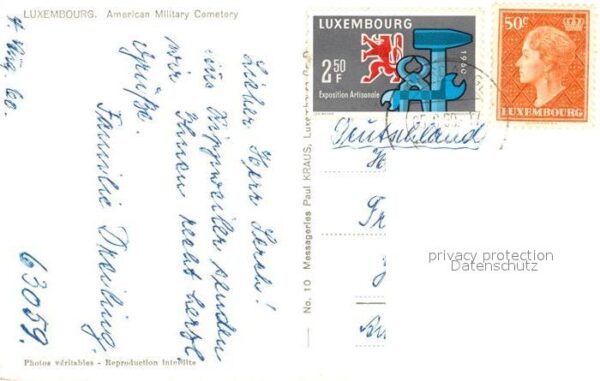 LUXEMBOURG. American Military Cemetery
4. Aug. 60.
Lieber Herr Lersch!
aus Krippweiler senden
wir Ihnen recht herzl.
Grüße.
Familie Dreiling.
63059.
Photos véritables - Reproduction Interdite
No. 10 Messageries Paul KRAUS, Luxembourg
LUXEMBOURG
2.50
F
1960
Exposition Artisanale
50c
LUXEMBOURG
Deutschland
H
Fr
privacy protection
Datenschutz